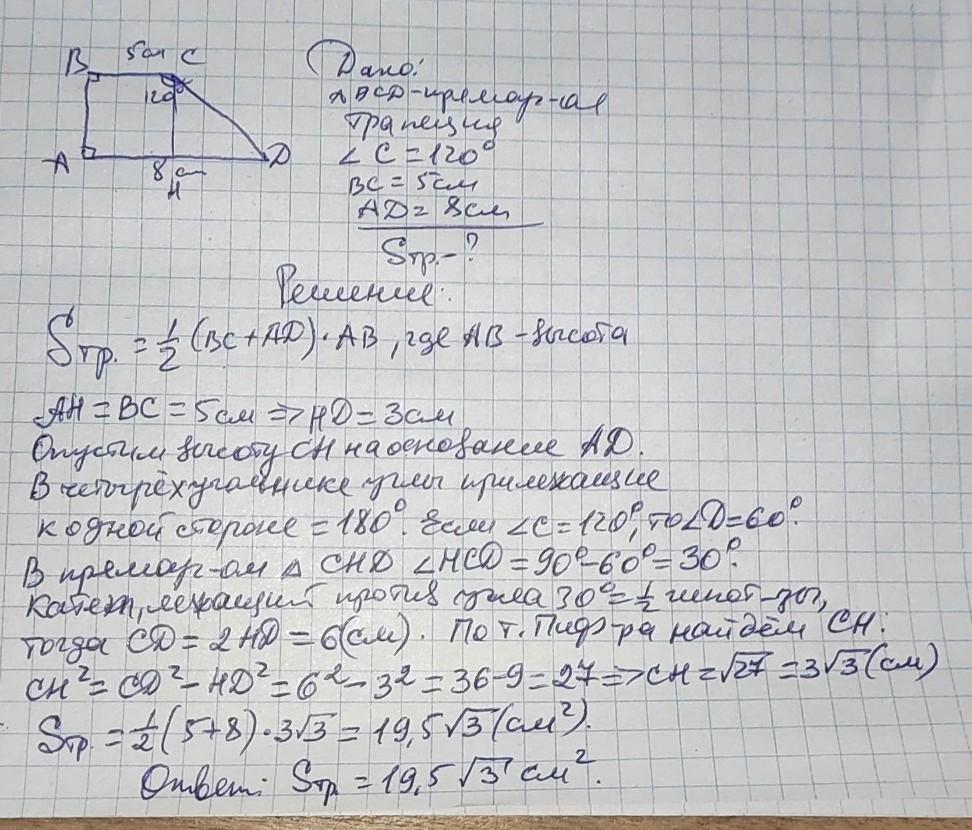 B 5см C
120
A 8 см D
H
Дано:
ABCD-прямоуг-ая
трапеция
∠C=120°
BC=5см
AD=8см
Sтр.-?
Решение:
Sтр.=½(BC+AD)·AB, где AB-высота
AH=BC=5см⇒HD=3см
Опустим высоту CH на основание AD.
В четырёхугольнике углы прилежащие
к одной стороне=180°. Если ∠C=120°, то ∠D=60°.
В прямоуг-ом △ CHD ∠HCD=90°-60°=30°.
Катет, лежащий против угла 30°=½ гипот-зы,
тогда CD=2HD=6(см). По т. Пифа-ра найдём CH:
CH²=CD²-HD²=6²-3²=36-9=27⇒CH=√27=3√3(см)
Sтр.=½(5+8)·3√3=19,5√3(см²).
Ответ: Sтр=19,5√3 см².